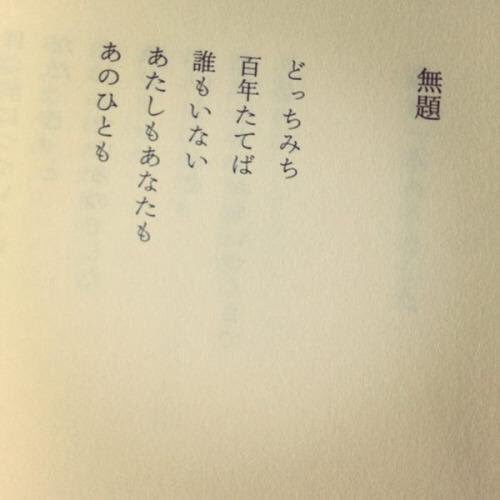 無題
どっちみち
百年たてば
誰もいない
あたしもあなたも
あのひとも